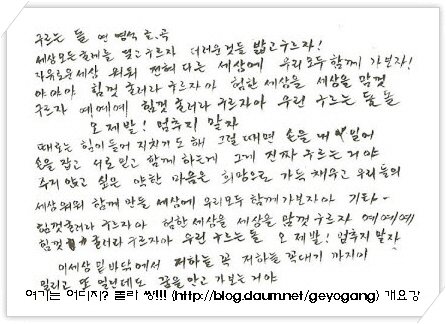 구르는 돌 연영석 글.곡
세상모든 굴레를 딛고구르자 더러운것들 밟고구르자!
자유로운세상 위해 전혀다른 세상에 우리모두 함께 가보자!
야아아 힘껏 굴러라 구르자아 험한세상을 세상을 맘껏
구르자 예예예 힘껏 굴러라 구르자아 우린 구르는 돌들
오 제발! 멈추지 말자
때로는 힘이들어 지치기도 해 그럴때면 손을 내밀어
손을 잡고 서로믿고 함께 하는게 그게 진짜 구르는거야
주저 앉고 싶은 약한 마음은 희망으로 가득 채우고 우리들의
세상위해 함께 만든 세상에 우리모두 함께가보자아 기타~
힘껏굴러라 구르자아 험한세상을 세상을 맘껏구르자 예예예
힘껏 굴러라 구르자아 우린구르는돌 오 제발! 멈추지 말자
이세상 밑바닥에서 저하늘 꼭 저하늘 꼭대기 까지이
밀리고 또 밀린데도 꿈을안고 가보는거야
여기는 어디지? 몰라 쌍!!! (http://blog.daum.net/geyogang) 개요강